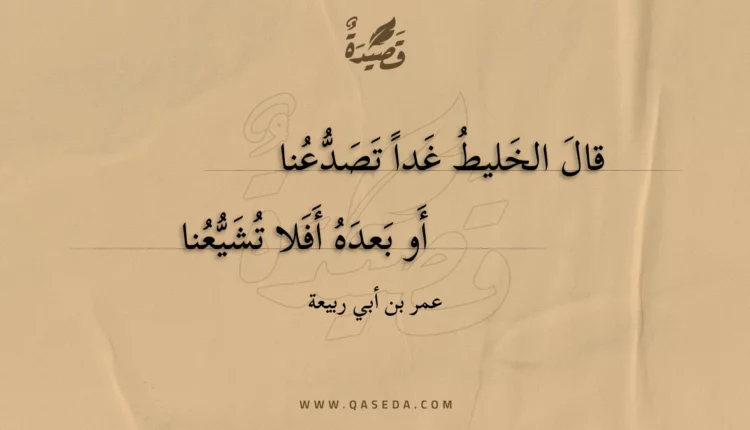 قَصِيدَةٌ
قالَ الخَليطُ غَداً تَصَدُّعُنا
أَو بَعدَهُ أَفَلا تُشَيُّعُنا
عمر بن أبي ربيعة
WWW.QASEDA.COM